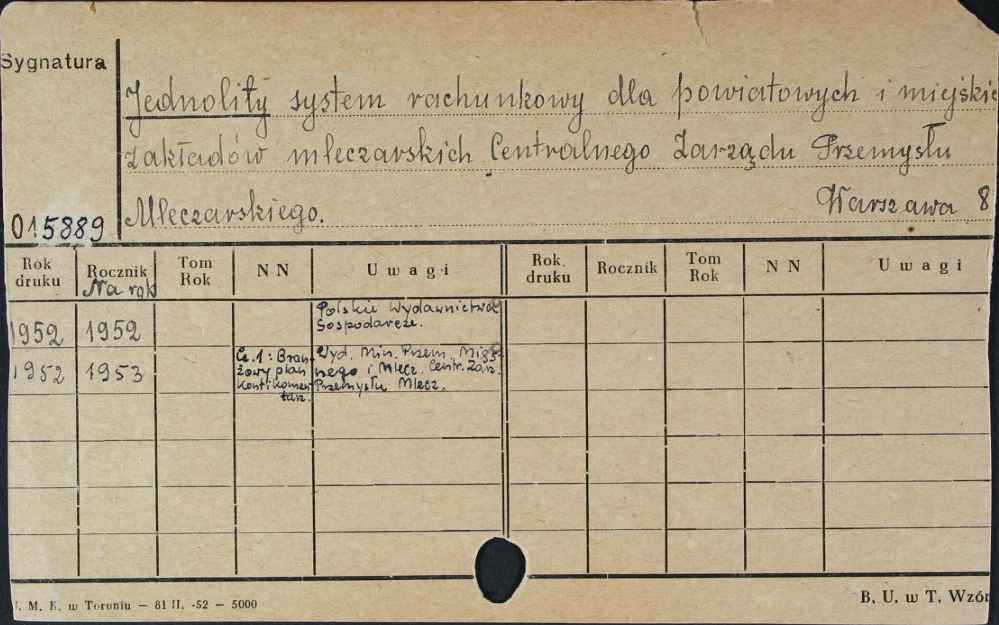 Sygnatura
Jednolity system rachunkowy dla powiatowych i miejskic
zakładów mleczarskich Centralnego Zarządu Przemysłu
Mleczarskiego. Warszawa 8
015889
Rok druku Rocznik Tom Rok NN Uwagi Rok druku Rocznik Tom Rok NN Uwagi
Na rok
1952 1952 Polskie Wydawnictwo
Gospodarcze.
1952 1953 Cz.1: Bran- Wyd. Min. Przem. Mięs-
żowy plan nego i Mlecz. Centr. Zarz.
kont i komen- Przemysłu Mlecz.
tarz.
. M. K. w Toruniu — 81 II. -52 — 5000 B. U. w T. Wzór